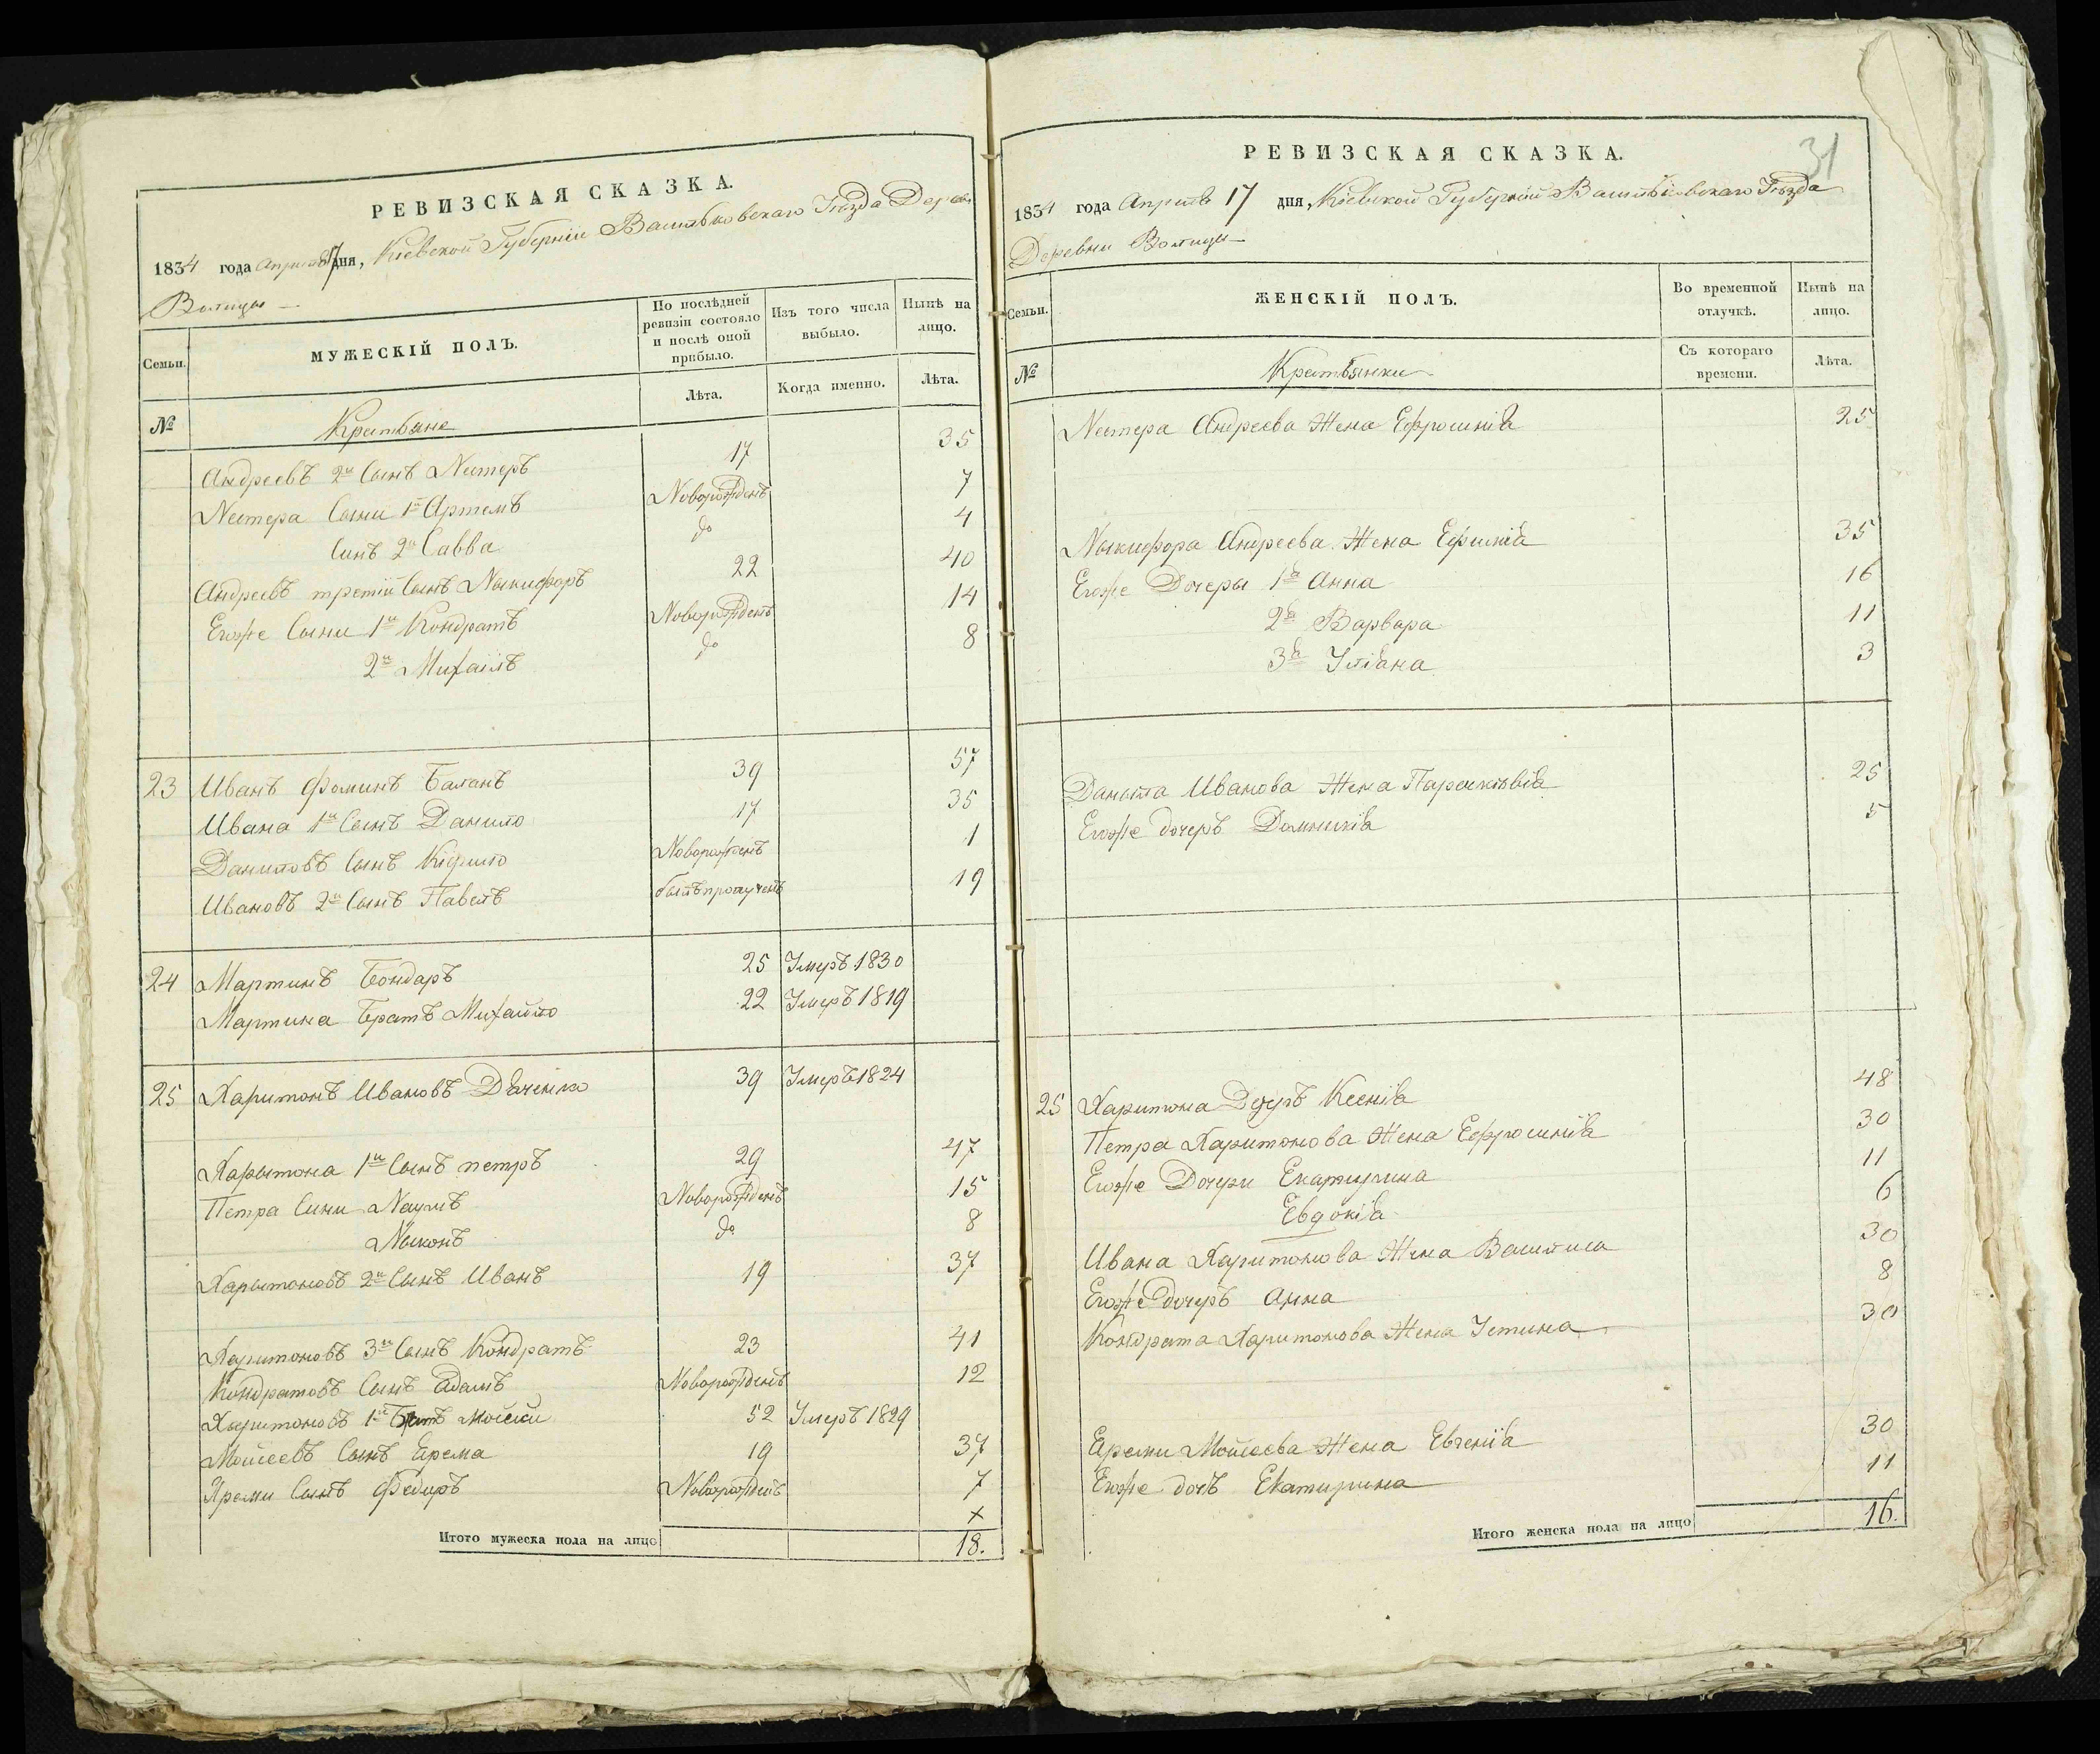 РЕВИЗСКАЯ СКАЗКА.
1834 года Апреля 17 дня, Кіевской Губерніи Васильковскаго Уѣзда Деревни
Волицы
Семьи.
МУЖЕСКІЙ ПОЛЪ.
По послѣдней ревизіи состояло и послѣ оной прибыло.
Изъ того числа выбыло.
Нынѣ на лицо.
№
Крестьяне
Лѣта.
Когда именно.
Лѣта.
Андреевъ 2й Сынъ Нестеръ 17 35
Нестера Сыни 1й Артемъ Новорожденъ 7
Синъ 2й Савва до 4
Андреевъ третій Сынъ Никифоръ 22 40
Егоже Сыни 1й Кондратъ Новорожденъ 14
2й Михаилъ до 8
23 Иванъ Фоминъ Баланъ 39 57
Ивана 1й Сынъ Данило 17 35
Даниловъ Сынъ Кирило Новорожденъ 1
Ивановъ 2й Сынъ Павелъ былъ пропущенъ 19
24 Мартинъ Бондаръ 25 Умеръ 1830
Мартина Братъ Михайло 22 Умеръ 1819
25 Харитонъ Ивановъ Дяченко 39 Умеръ 1824
Харытона 1й Сынъ петръ 29 47
Петра Сини Наумъ Новорожденъ 15
Никонъ до 8
Харытоновъ 2й Сынъ Иванъ 19 37
Харитоновъ 3й Сынъ Кондратъ 23 41
Кондратовъ Сынъ Адамъ Новорожденъ 12
Харитоновъ 1й Братъ Мойсей 52 Умеръ 1829
Мойсеевъ Сынъ Ерема 19 37
Яреми Сынъ Федоръ Новорожденъ 7
х
Итого мужеска пола на лицо 18.
31
РЕВИЗСКАЯ СКАЗКА.
1834 года Апреля 17 дня, Кіевской Губерніи Васильковскаго Уѣзда
Деревни Волицы
Семьи.
ЖЕНСКІЙ ПОЛЪ.
Во временной отлучкѣ.
Нынѣ на лицо.
№
Крестьянки
Съ котораго времени.
Лѣта.
Нестера Андреева Жена Ефросинія 25
Никифора Андреева Жена Ефимія 35
Егоже Дочеры 1я Анна 16
2я Варвара 11
3я Уліана 3
Данила Иванова Жена Параскѣвія 25
Егоже дочеръ Домникія 5
25 Харитона Дочеръ Ксенія 48
Петра Харитонова Жена Ефросинія 30
Егоже Дочери Екатирина 11
Евдокія 6
Ивана Харитонова Жена Василиса 30
Егоже дочеръ Анна 8
Кондрата Харитонова Жена Устина 30
Еремы Мойсеева Жена Евгенія 30
Егоже дочъ Екатирина 11
Итого женска пола на лицо 16.